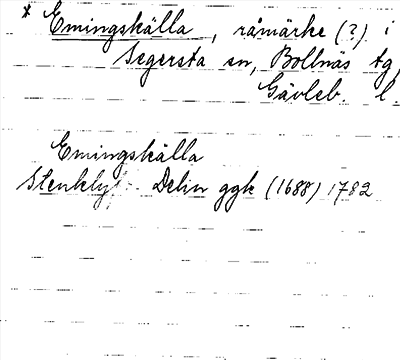 * Emingskälla, råmärke (?) i
Segersta sn, Bollnäs tg
Gävleb. l.
Emingskälla
Delin ggk (1688) 1782